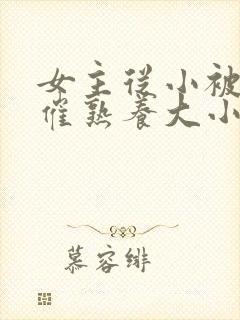 女主从小被
催熟养大小
慕容绯